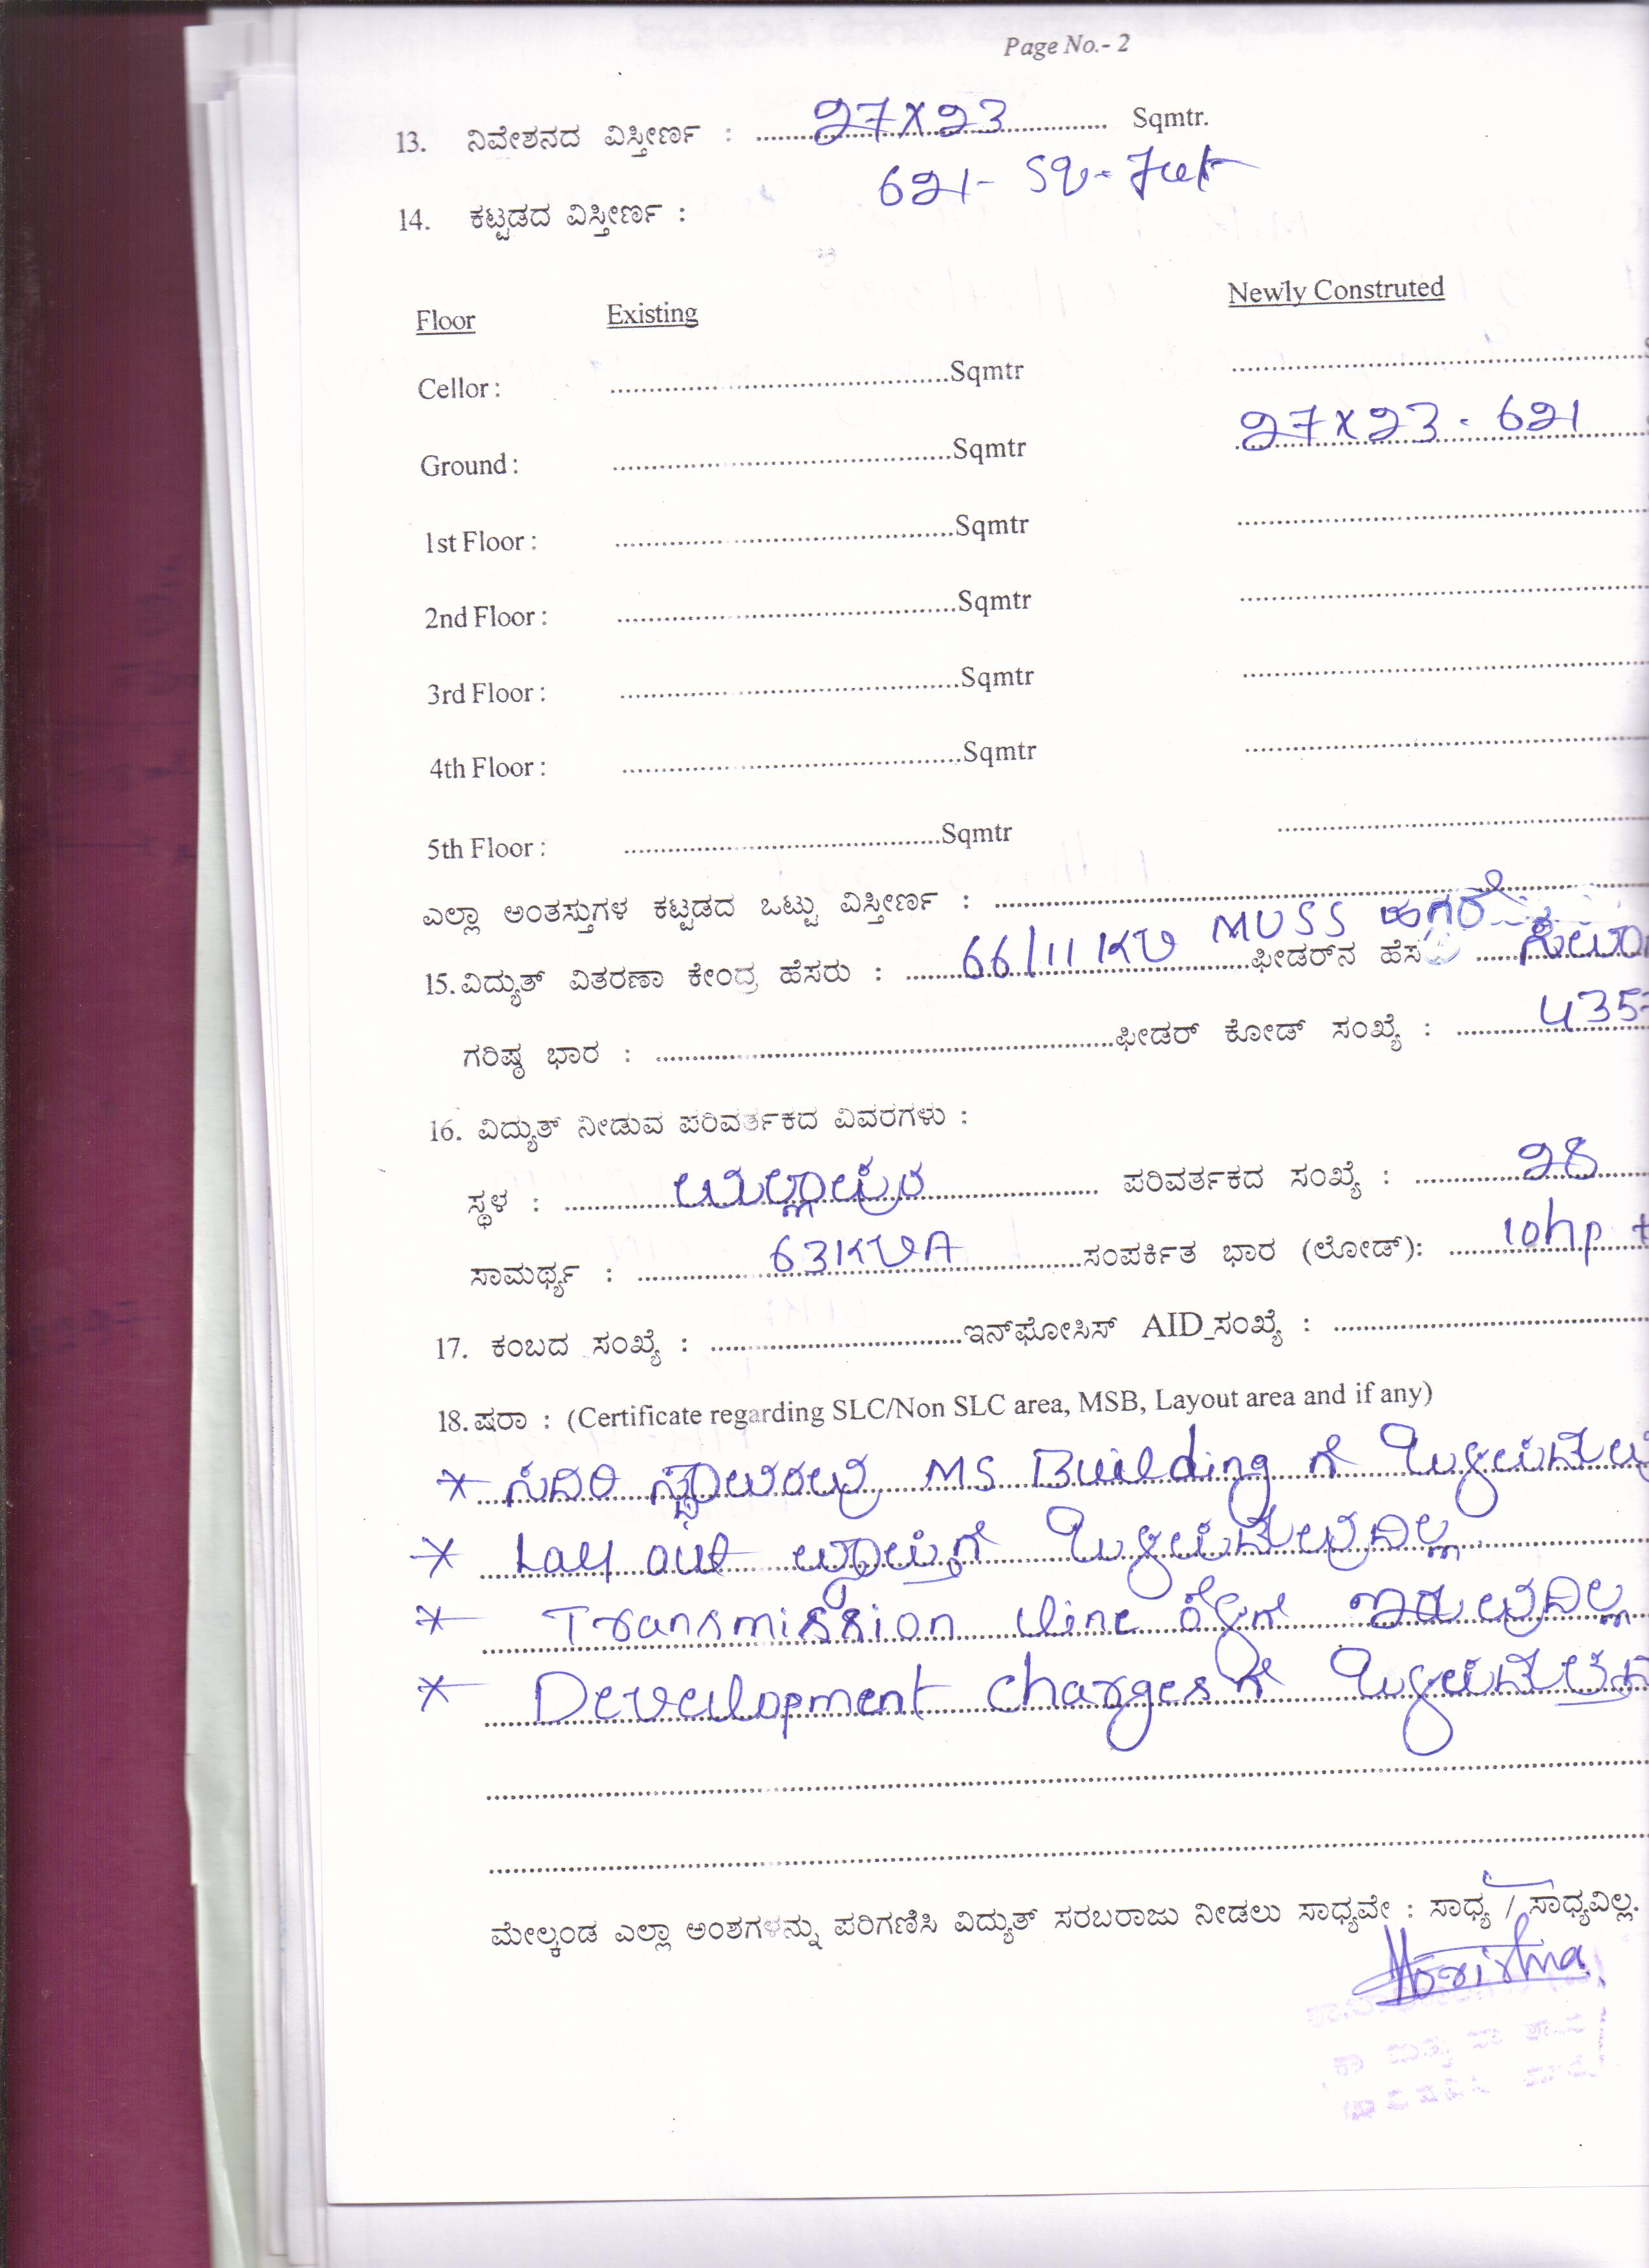 Page No.- 2
13. ನಿವೇಶನದ ವಿಸ್ತೀರ್ಣ : 27 X 23 Sqmtr.
621- Sq - Feet
14. ಕಟ್ಟಡದ ವಿಸ್ತೀರ್ಣ :
Floor Existing Newly Construted
Cellor : Sqmtr
Ground : Sqmtr 27 X 23 - 621
1st Floor : Sqmtr
2nd Floor : Sqmtr
3rd Floor : Sqmtr
4th Floor : Sqmtr
5th Floor : Sqmtr
ಎಲ್ಲಾ ಅಂತಸ್ತುಗಳ ಕಟ್ಟಡದ ಒಟ್ಟು ವಿಸ್ತೀರ್ಣ :
15. ವಿದ್ಯುತ್ ವಿತರಣಾ ಕೇಂದ್ರ ಹೆಸರು : 66/11 KV MUSS ಹಗರೆ ಫೀಡರ್‌ನ ಹೆಸ
ಗರಿಷ್ಠ ಭಾರ : ಫೀಡರ್ ಕೋಡ್ ಸಂಖ್ಯೆ : 435
16. ವಿದ್ಯುತ್ ನೀಡುವ ಪರಿವರ್ತಕದ ವಿವರಗಳು :
ಸ್ಥಳ : ಪರಿವರ್ತಕದ ಸಂಖ್ಯೆ : 28
ಸಾಮರ್ಥ್ಯ : 63KVA ಸಂಪರ್ಕಿತ ಭಾರ (ಲೋಡ್): 10hp +
17. ಕಂಬದ ಸಂಖ್ಯೆ : ಇನ್‌ಫೋಸಿಸ್ AID_ಸಂಖ್ಯೆ :
18. ಷರಾ : (Certificate regarding SLC/Non SLC area, MSB, Layout area and if any)
* ಸದರಿ ಸ್ಥಾವರವು MS Building ಗೆ
* Lay out ವ್ಯಾಪ್ತಿಗೆ ಒಳಪಡುವುದಿಲ್ಲ
* Transmission line ಕೆಳಗೆ ಇರುವುದಿಲ್ಲ
* Development charges ಗೆ
ಮೇಲ್ಕಂಡ ಎಲ್ಲಾ ಅಂಶಗಳನ್ನು ಪರಿಗಣಿಸಿ ವಿದ್ಯುತ್ ಸರಬರಾಜು ನೀಡಲು ಸಾಧ್ಯವೇ : ಸಾಧ್ಯ / ಸಾಧ್ಯವಿಲ್ಲ.